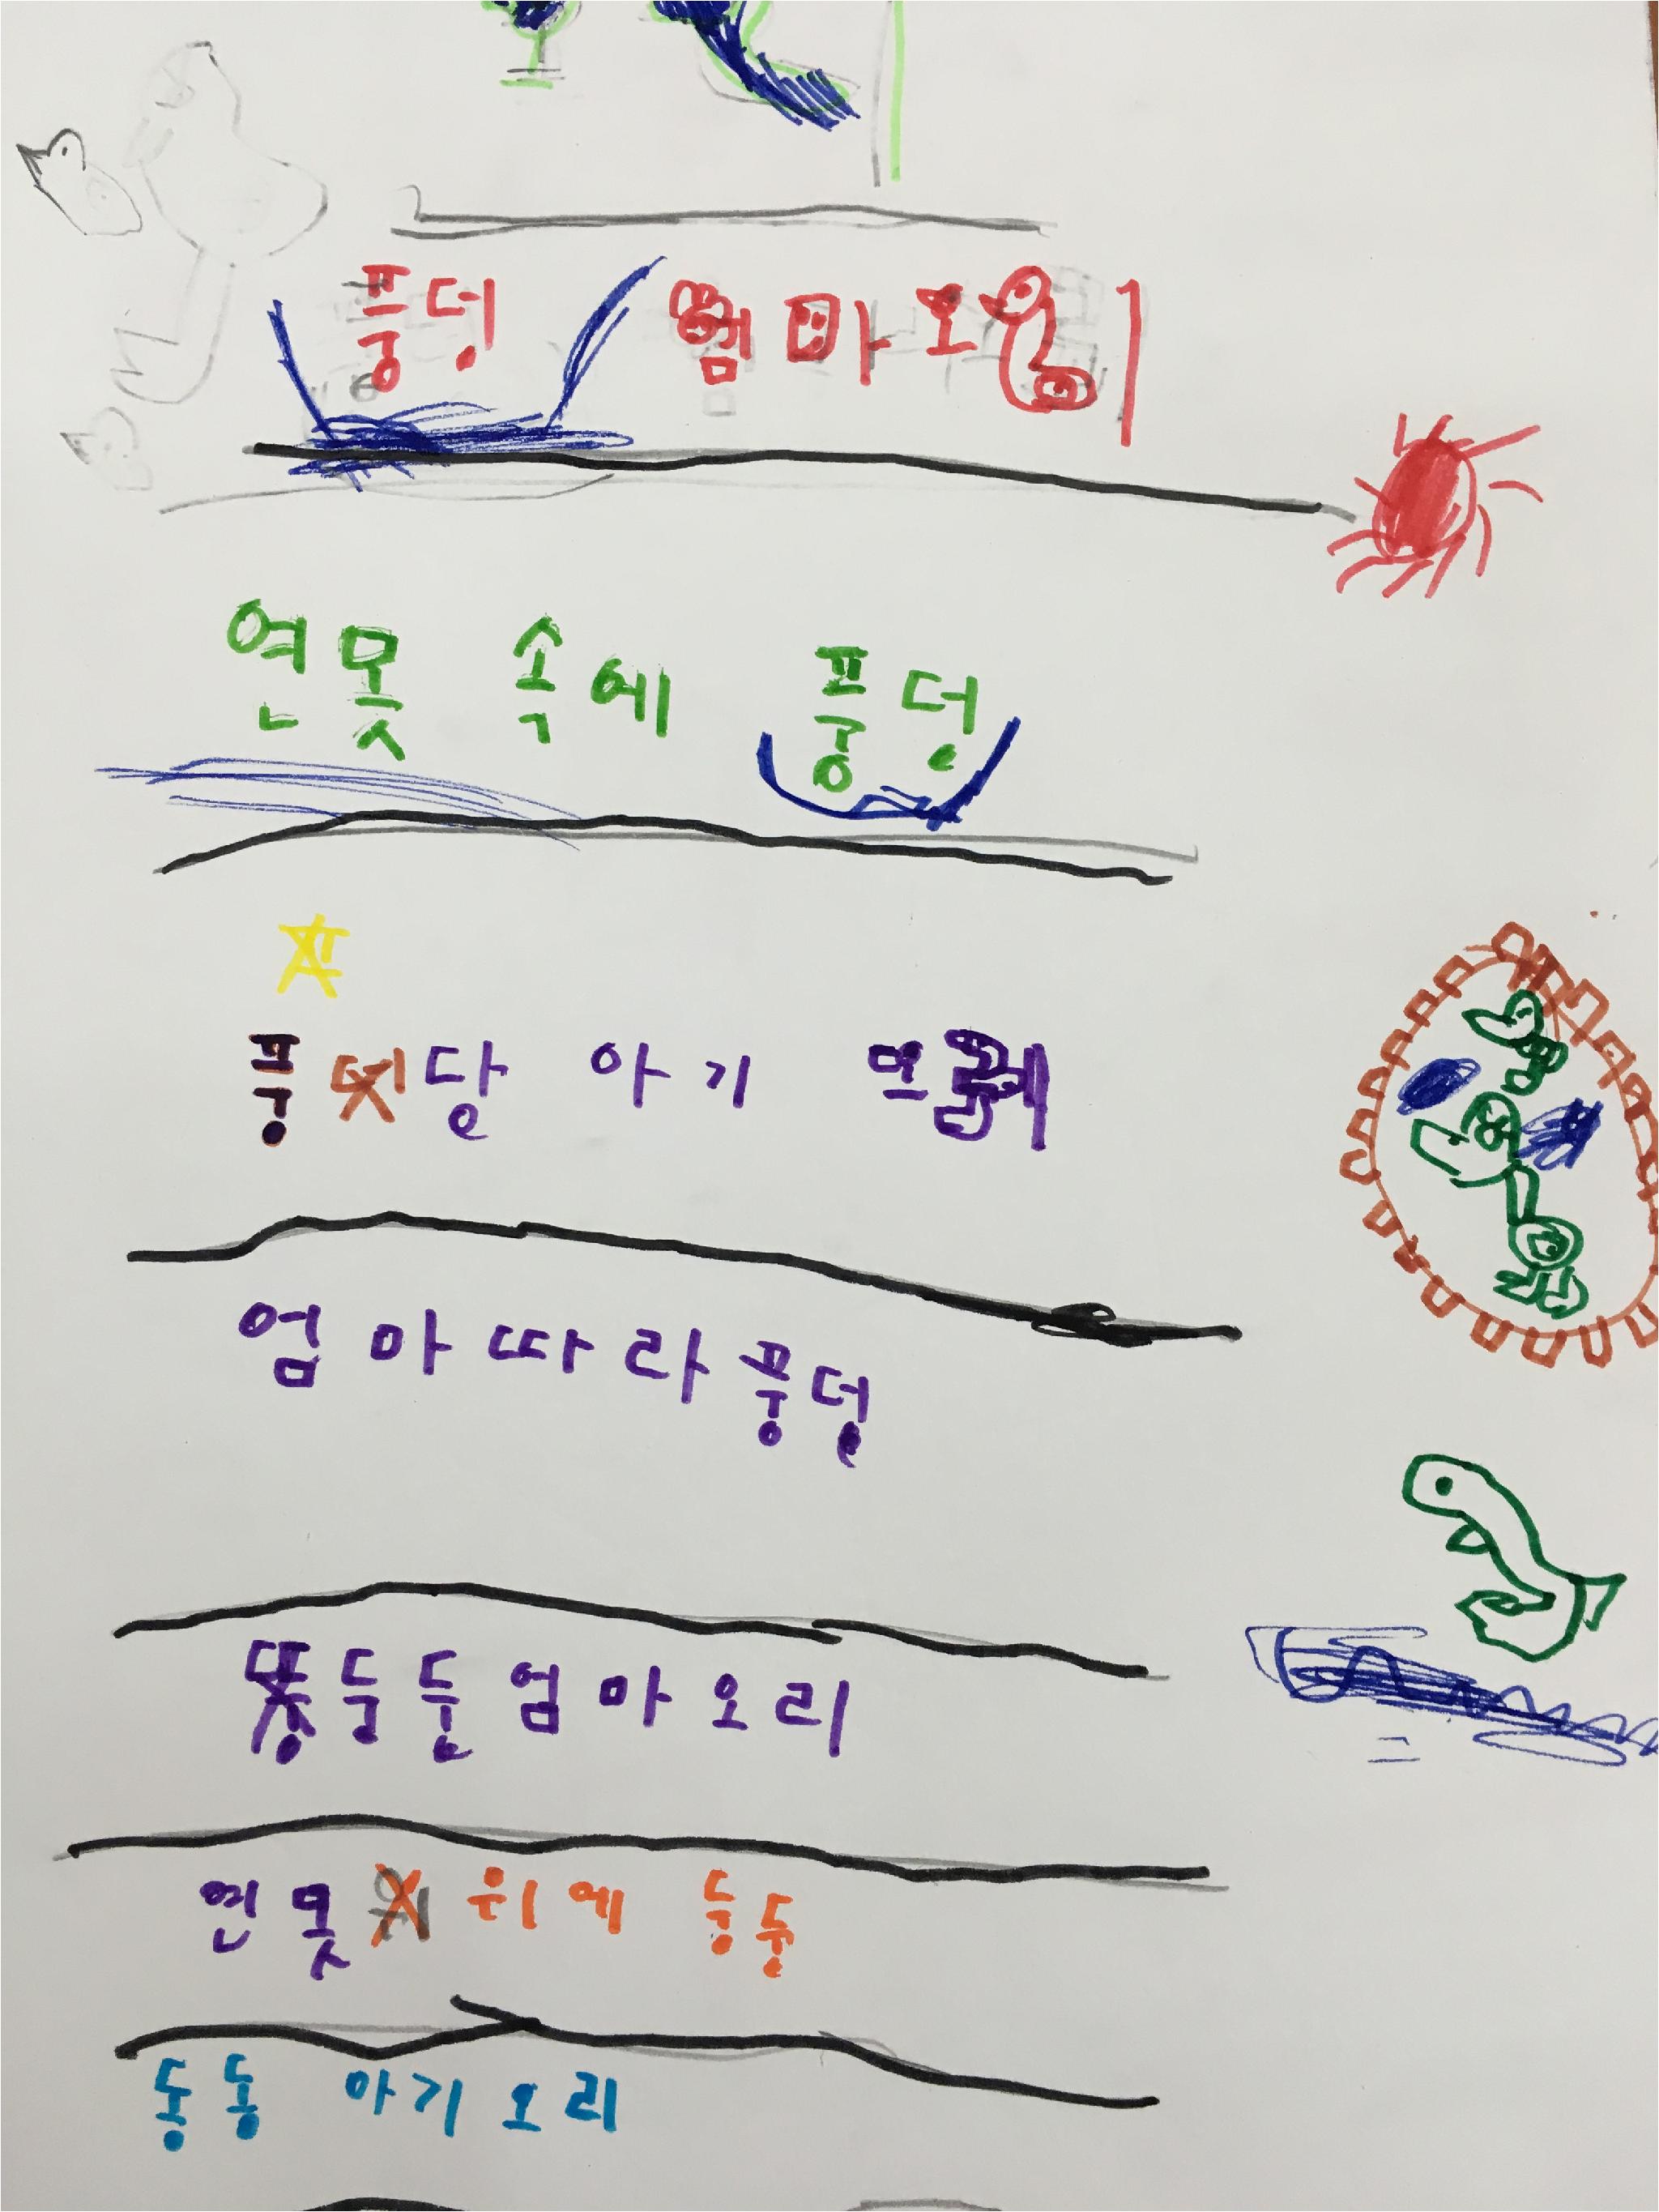 풍덩 엄마 오리
연못 속에 풍덩
퐁당 아기 오리
엄마 따라 퐁덩
둥둥 엄마 오리
연못 위에 둥둥
동동 아기 오리